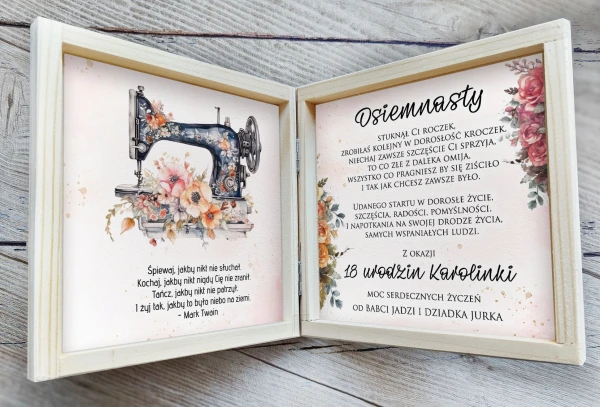 Śpiewaj, jakby nikt nie słuchał.
Kochaj, jakby nikt nigdy Cię nie zranił.
Tańcz, jakby nikt nie patrzył.
I żyj tak, jakby to było niebo na ziemi.
- Mark Twain
Osiemnasty
STUKNĄŁ CI ROCZEK,
ZROBIŁAŚ KOLEJNY W DOROSŁOŚĆ KROCZEK,
NIECHAJ ZAWSZE SZCZĘŚCIE CI SPRZYJA,
TO CO ZŁE Z DALEKA OMIJA,
WSZYSTKO CO PRAGNIESZ BY SIĘ ZIŚCIŁO
I TAK JAK CHCESZ ZAWSZE BYŁO.
UDANEGO STARTU W DOROSŁE ŻYCIE,
SZCZĘŚCIA, RADOŚCI, POMYŚLNOŚCI,
I NAPOTKANIA NA SWOJEJ DRODZE ŻYCIA,
SAMYCH WSPANIAŁYCH LUDZI.
Z OKAZJI
18 urodzin Karolinki
MOC SERDECZNYCH ŻYCZEŃ
OD BABCI JADZI I DZIADKA JURKA